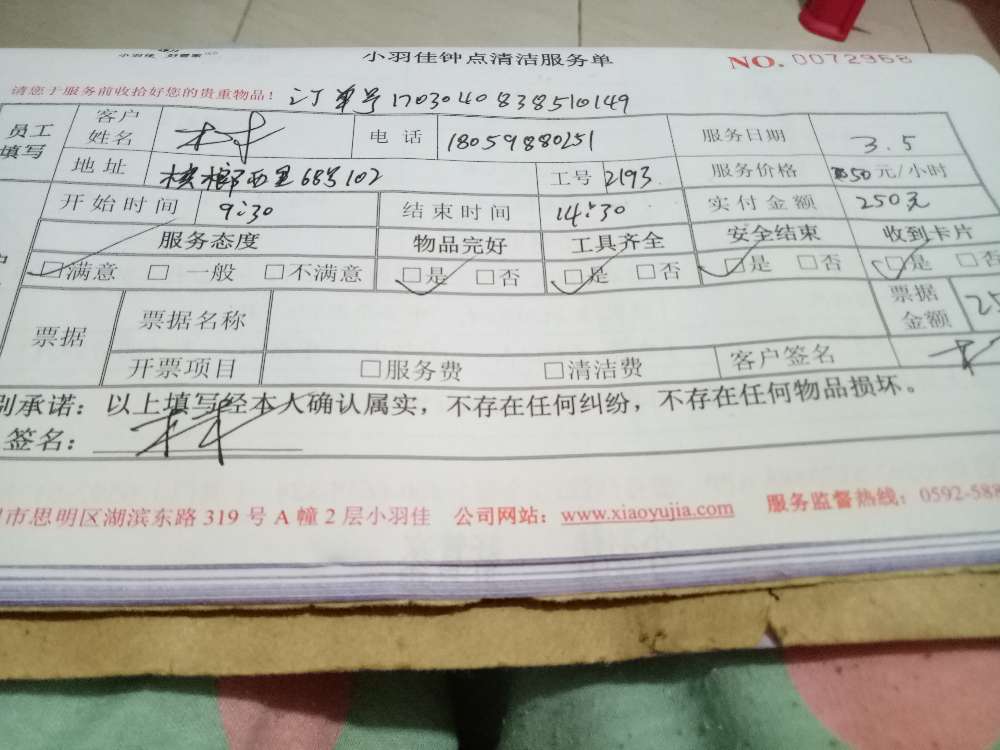 小羽佳 好管家
小羽佳钟点清洁服务单
NO. 0072958
请您于服务前收拾好您的贵重物品! 订单号170304083851０149
员工填写 客户姓名 林 电话 18059880251 服务日期 3.5
地址 槟榔西里68号102 工号 2193 服务价格 50元/小时
开始时间 9:30 结束时间 14:30 实付金额 250元
服务态度 物品完好 工具齐全 安全结束 收到卡片
☑满意 □一般 □不满意 ☑是 □否 ☑是 □否 ☑是 □否 ☑是 □否
票据 票据名称 票据金额
开票项目 □服务费 □清洁费 客户签名 林
别承诺：以上填写经本人确认属实，不存在任何纠纷，不存在任何物品损坏。
签名：林
市思明区湖滨东路 319 号 A 幢 2 层小羽佳 公司网站：www.xiaoyujia.com 服务监督热线：0592-588